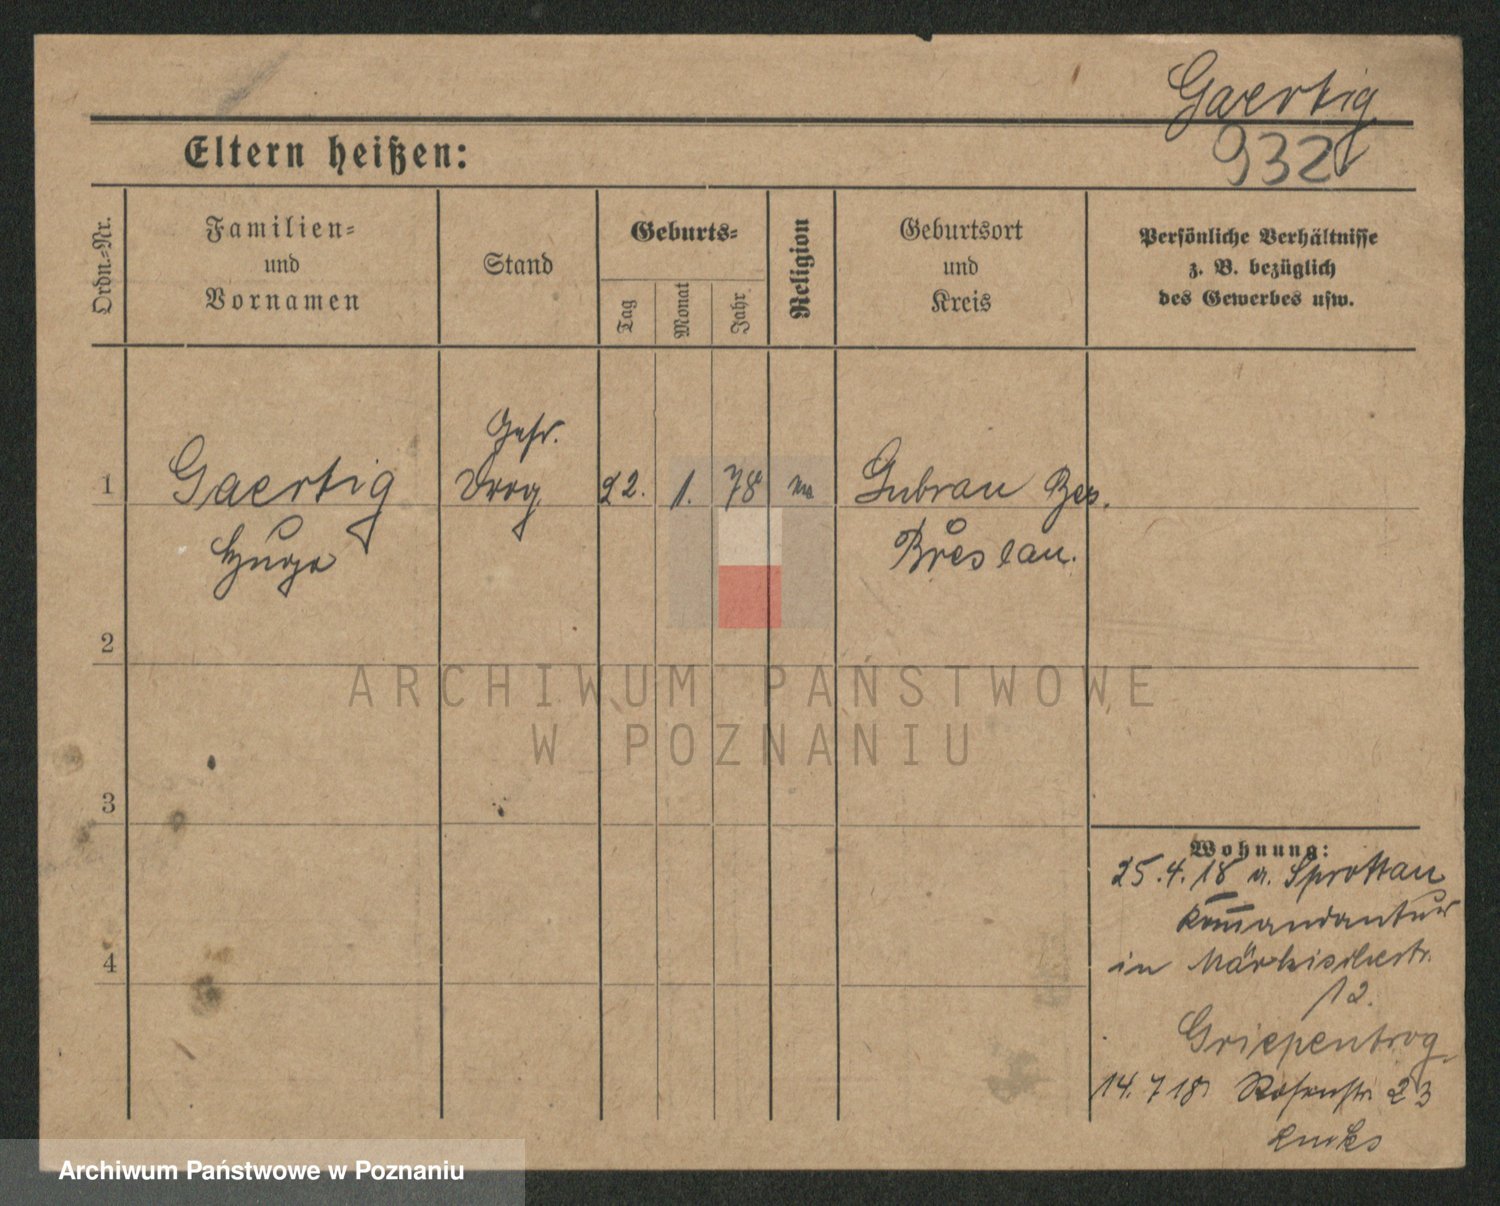 Gaertig
932
Eltern heißen:
Ordn.=Nr.
Familien=
und
Vornamen
Stand
Geburts=
Tag
Monat
Jahr
Religion
Geburtsort
und
Kreis
Persönliche Verhältnisse
z. B. bezüglich
des Gewerbes usw.
Gefr.
1 Gaertig Drog. 22. 1. 78 Guhrau Bez.
Hugo Breslau.
2
ARCHIWUM PAŃSTWOWE
W POZNANIU
3
Wohnung:
25.4.18 a. Sprottau
Kommandantur
in Märkischestr.
4
12.
Griepentrog
14.7 18 Rosenstr. 23
Archiwum Państwowe w Poznaniu